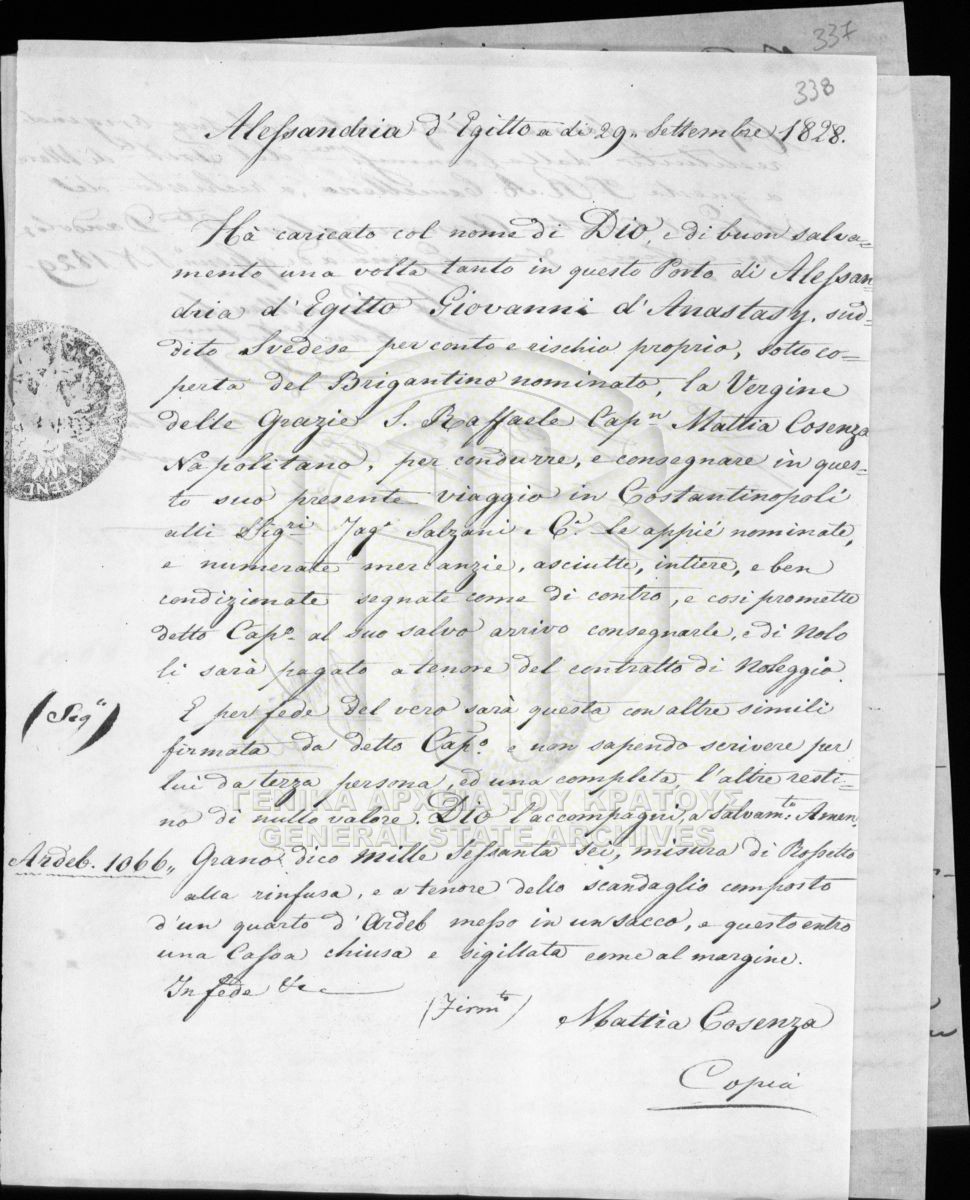 337
338
Alessandria d'Egitto a di 29,, Settembre 1828.
Hà caricato col nome di Dio, e di buon salva-
mento una volta tanto in questo Porto di Alessan-
dria d'Egitto Giovanni d'Anastasy, sud-
dito Svedese per conto e rischio proprio, sotto co-
perta del Brigantino nominato, la Vergine
delle Grazie S. Raffaele Cap.n Mattia Cosenza
Napolitano, per condurre, e consegnare in ques-
to suo presente viaggio in Costantinopoli
alli Sig.ri Jag.o Salzani e C.o le appié nominate,
e numerate mercanzie, asciutte, intiere, e ben
condizionate segnate come di contro, e così promette
detto Cap.o al suo salvo arrivo consegnarle, e di Nolo
li sarà pagato a tenore del contratto di Noleggio.
E per fede del vero sarà questa con altre simili
(Sig.o)
firmata da detto Cap.o e non sapendo scrivere per
lui da terza persona, ed una completa, l'altre resti-
no di nullo valore. Dio l'accompagni, a salvam.to Amen.
ΓΕΝΙΚΑ ΑΡΧΕΙΑ ΤΟΥ ΚΡΑΤΟΥΣ
GENERAL STATE ARCHIVES
Ardeb. 1066,, Grano dico mille Sessanta sei, misura di Rossetto
alla rinfusa, e a tenore dello scandaglio composto
d'un quarto d'Ardeb messo in un sacco, e questo entro
una Cassa chiusa e sigillata come al margine.
In fede &c
(Firm.to) Mattia Cosenza
Copia